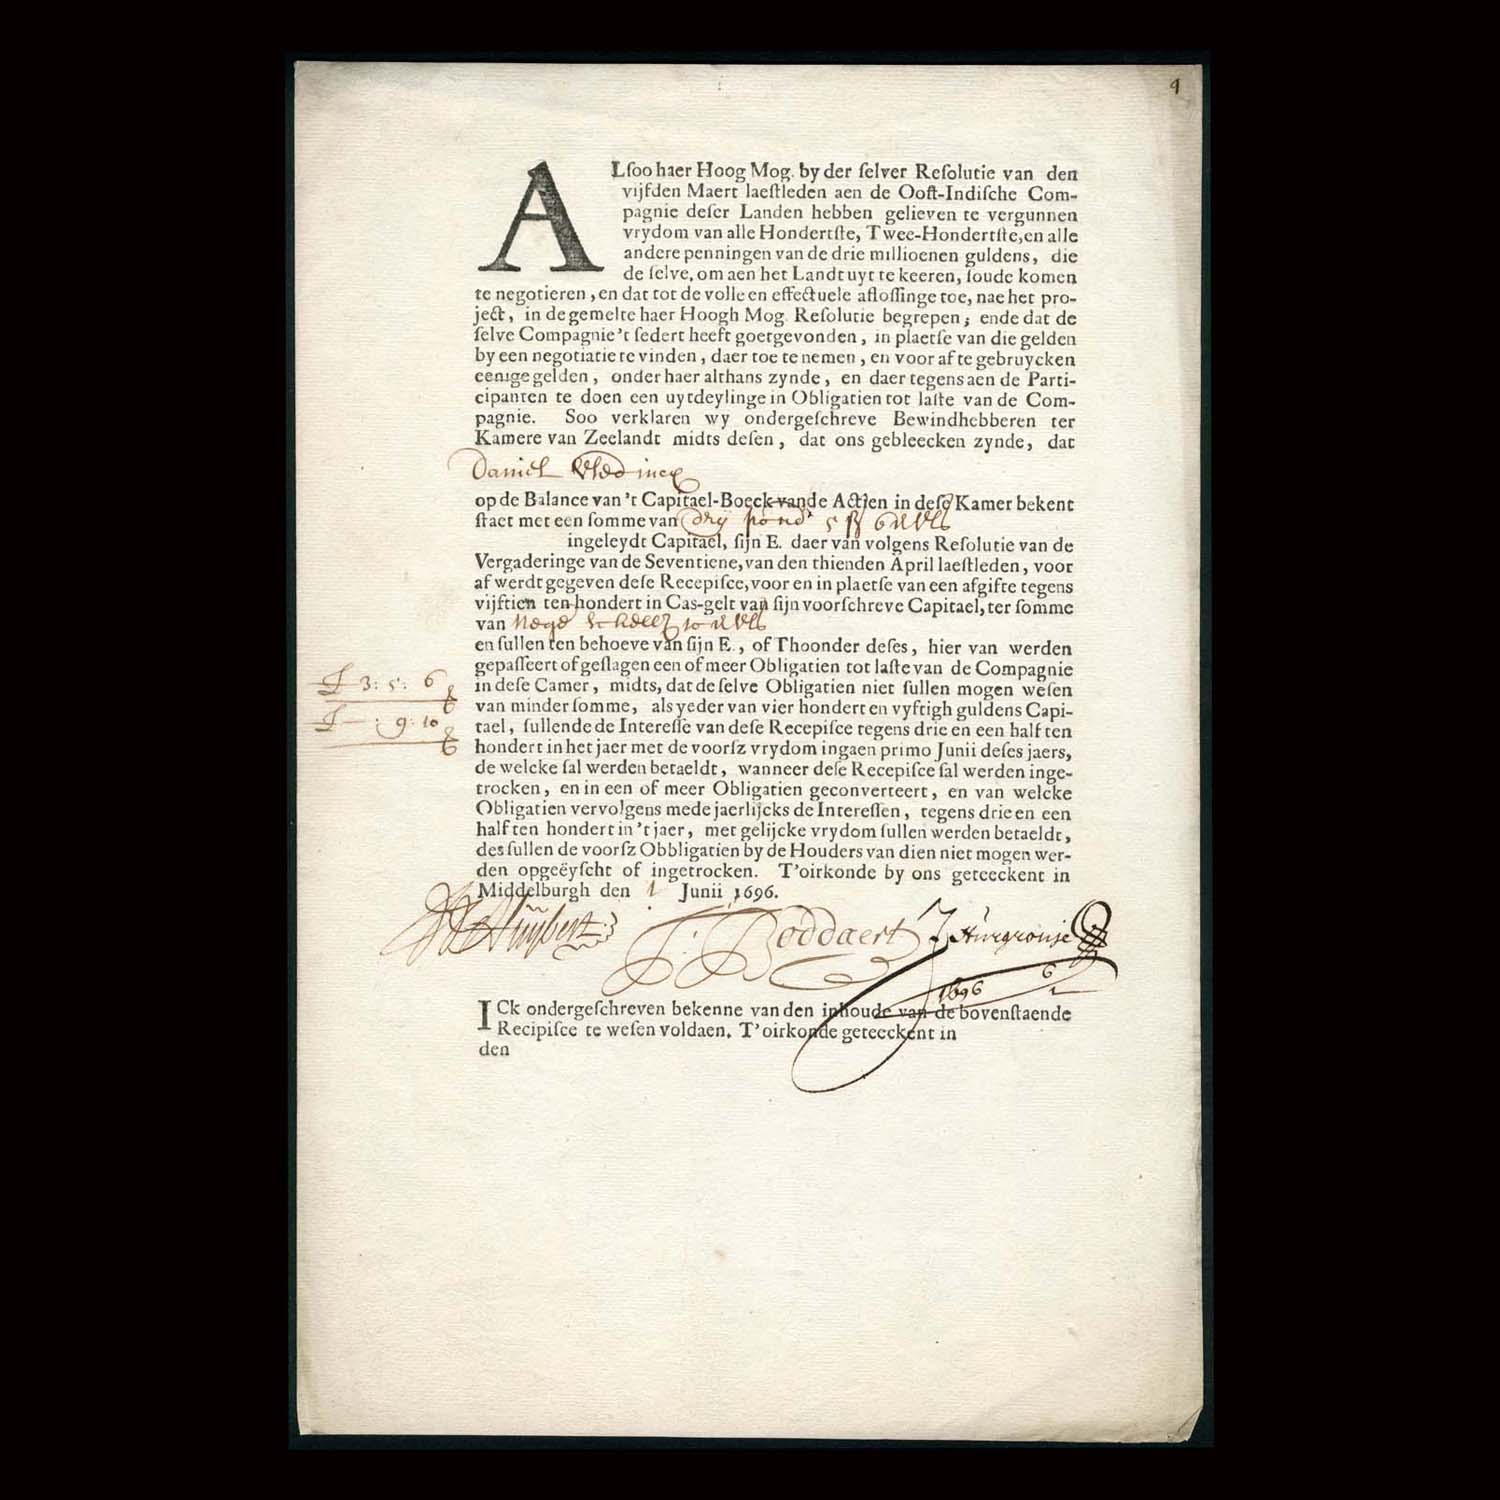 9
ALsoo haer Hoog Mog. by der selver Resolutie van den
vijfden Maert laestleden aen de Oost-Indische Com-
pagnie deser Landen hebben gelieven te vergunnen
vrydom van alle Hondertste, Twee-Hondertste, en alle
andere penningen van de drie millioenen guldens, die
de selve, om aen het Landt uyt te keeren, soude komen
te negotieren, en dat tot de volle en effectuele aflossinge toe, nae het pro-
ject, in de gemelte haer Hoogh Mog. Resolutie begrepen; ende dat de
selve Compagnie 't sedert heeft goetgevonden, in plaetse van die gelden
by een negotiatie te vinden, daer toe te nemen, en voor af te gebruycken
eenige gelden, onder haer althans zynde, en daer tegens aen de Parti-
cipanten te doen een uytdeylinge in Obligatien tot laste van de Com-
pagnie. Soo verklaren wy ondergeschreve Bewindhebberen ter
Kamere van Zeelandt midts desen, dat ons gebleecken zynde, dat
Daniel
op de Balance van 't Capitael-Boeck van de Actien in dese Kamer bekent
staet met een somme van drij pond 5 ß 6
ingeleydt Capitael, sijn E. daer van volgens Resolutie van de
Vergaderinge van de Seventiene, van den thienden April laestleden, voor
af werdt gegeven dese Recepisce, voor en in plaetse van een afgifte tegens
vijftien ten hondert in Cas-gelt van sijn voorschreve Capitael, ter somme
van Nege schell 10
en sullen ten behoeve van sijn E., of Thoonder deses, hier van werden
gepasseert of geslagen een of meer Obligatien tot laste van de Compagnie
£ 3: 5: 6 in dese Camer, midts, dat de selve Obligatien niet sullen mogen wesen
van minder somme, als yeder van vier hondert en vyftigh guldens Capi-
£ — : 9: 10 tael, sullende de Interesse van dese Recepisce tegens drie en een half ten
hondert in het jaer met de voorsz vrydom ingaen primo Junii deses jaers,
de welcke sal werden betaeldt, wanneer dese Recepisce sal werden inge-
trocken, en in een of meer Obligatien geconverteert, en van welcke
Obligatien vervolgens mede jaerlijcks de Interessen, tegens drie en een
half ten hondert in 't jaer, met gelijcke vrydom sullen werden betaeldt,
des sullen de voorsz Obbligatien by de Houders van dien niet mogen wer-
den opgeëyscht of ingetrocken. T'oirkonde by ons geteeckent in
Middelburgh den 1 Junii 1696.
Huijbert J. Boddaert
1696 6
ICk ondergeschreven bekenne van den inhoude van de bovenstaende
Recipisce te wesen voldaen. T'oirkonde geteeckent in
den